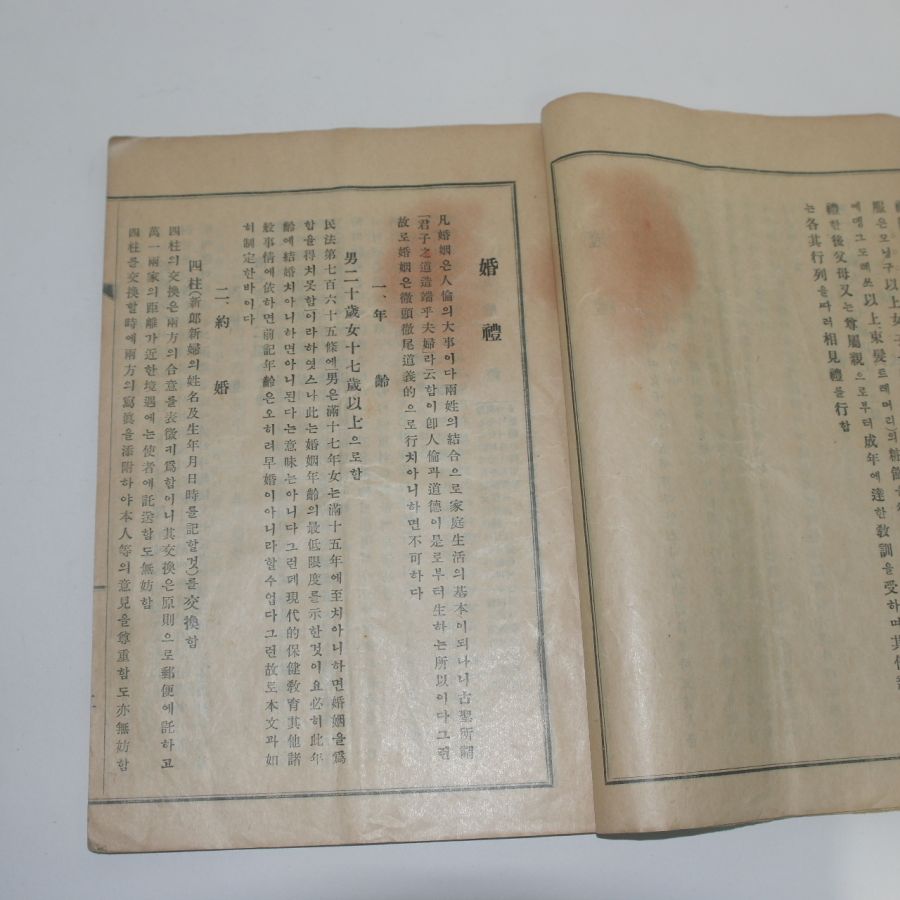 以上女子
服은모낭구
에맹그도레쓰以上束髮트레머리)의粧飾
禮한後父母又는尊屬親으로부터成年에達한敎訓을受하며其
는各其行列을따러相見禮를行함
婚禮
凡婚姻은人倫의大事이다兩姓의結合으로家庭生活의基本이되나니古聖所謂
「君子之道造端乎夫婦」라云함이卽人倫과道德이是로부터生하는所以이다그런
故로婚姻은徹頭徹尾道義的으로行치아니하면不可하다
一、年齡
男二十歲女十七歲以上으로함
民法第七百六十五條에「男은滿十七年女는滿十五年에至치아니하면婚姻을爲
함을得치못함」이라하엿스나此는婚姻年齡의最低限度를示한것이요必히此年
齡에結婚치아니하면아니된다는意味는아니다그런데現代的保健敎育其他諸
般事情에依하면前記年齡은오히려早婚이아니라할수업다그런故로本文과如
히制定한바이다
二、約婚
四柱(新郞新婦의姓名及生年月日時를記할것)를交換함
四柱의交換은兩方의合意를表徵키爲함이니其交換은原則으로郵便에託하고
萬一兩家의距離가近한境遇에는使者에託送함도無妨함
四柱를交換할時에兩方의寫眞을添附하야本人等의意見을尊重함도亦無妨함